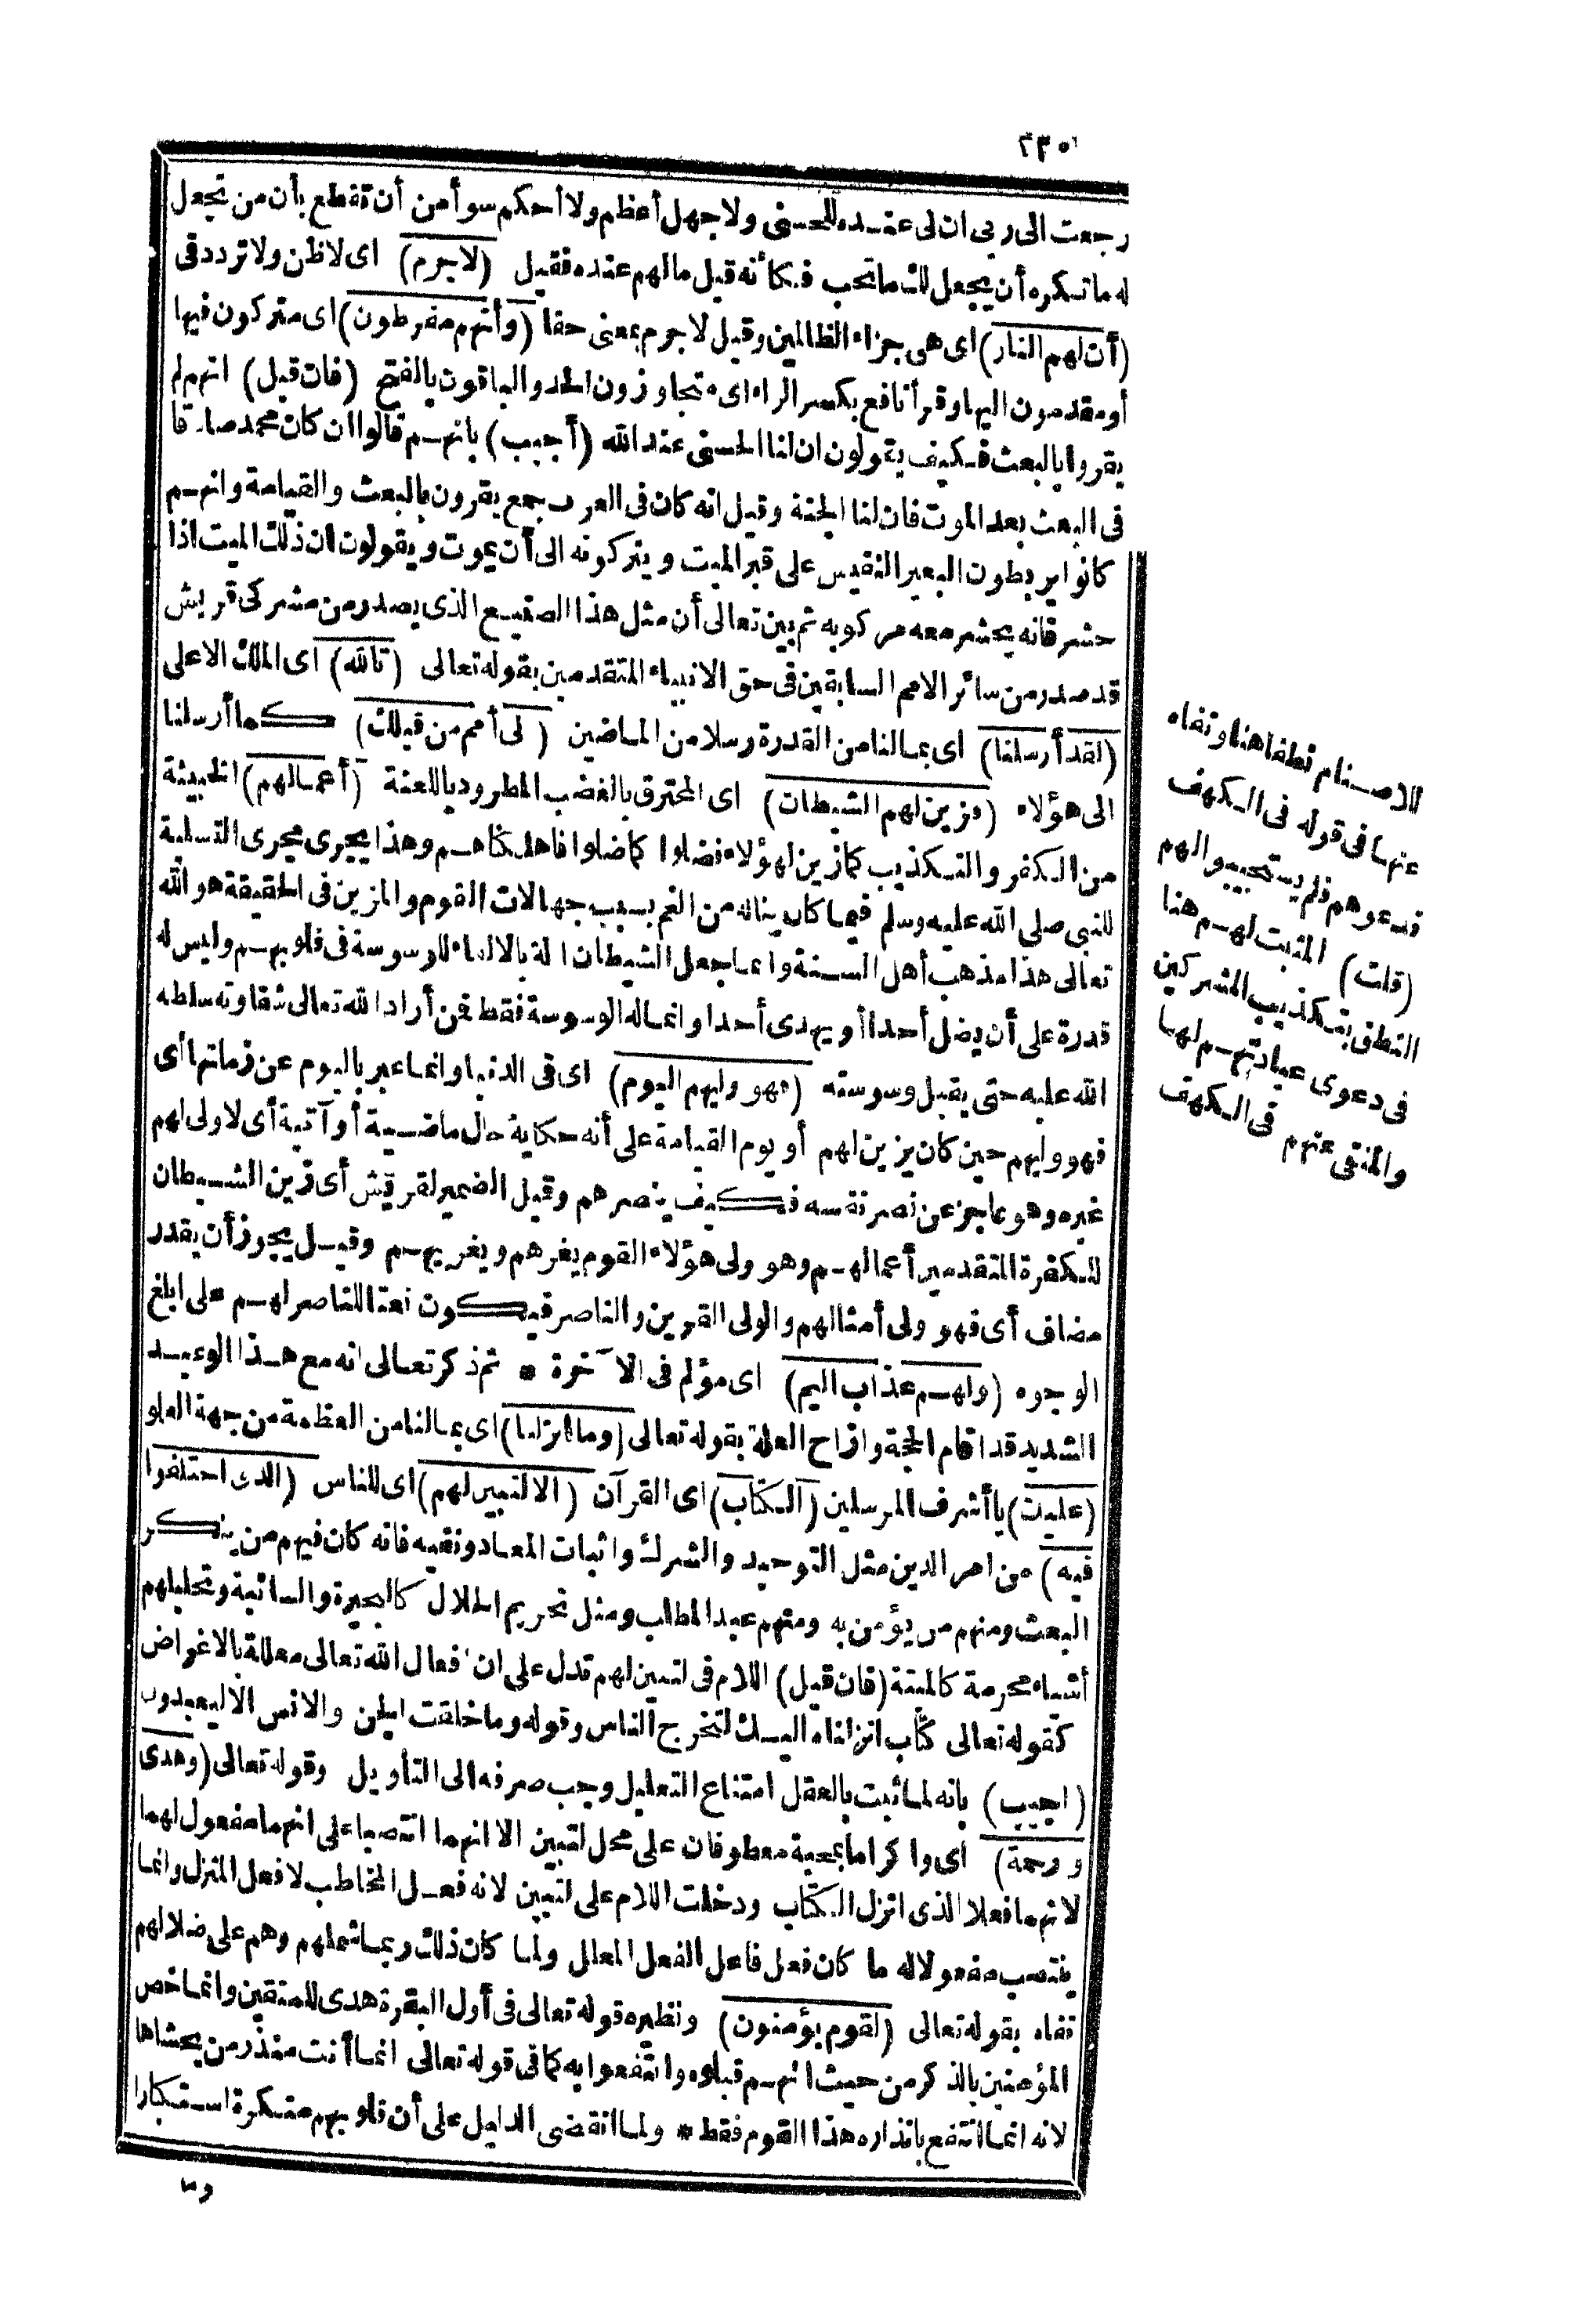 رجعت الى ربى ان لى عنده للحسنى ولا جهل أعظم ولا أحكم سوأ من أن تقطع بأن من تجعل
له ما تكره أن يجعل لك ما تحب فكأنه قيل مالهم عنده فقيل (لاجرم) اى لاظن ولا تردد فى
(أن لهم النار) اى هى جزاء الظالمين وقيل لا جرم بمعنى حقا (وأنهم مفرطون) اى متركون فيها
أو مقدمون اليها وقرأ نافع بكسر الراء اى متجاوزون الحد والباقون بالفتح (فان قيل) انهم لم
يقروا بالبعث فكيف يقولون ان لنا الحسنى عند الله (أجيب) بانهم قالوا ان كان محمد صادقا
فى البعث بعد الموت فان لنا الجنة وقيل انه كان فى العرب جمع يقرون بالبعث والقيامة وانهم
كانوا يربطون البعير النفيس على قبر الميت ويتركونه الى أن يموت ويقولون ان ذلك الميت اذا
حشر فانه يحشر معه مركوبه ثم بين تعالى أن مثل هذا الصنيع الذى يصدر من مشركى قريش
قد صدر من سائر الامم السابقين فى حق الانبياء المتقدمين بقوله تعالى (تالله) اى الملك الاعلى
(لقد أرسلنا) اى بمالنا من القدرة رسلا من الماضين (لى أمم من قبلك) كما أرسلنا
الى هؤلاء (فزين لهم الشيطان) اى المحترق بالغضب المطرود باللعنة (أعمالهم) الخبيثة
من الكفر والتكذيب كما زين لهؤلاء فضلوا كما ضلوا فاهلكناهم وهذا يجرى مجرى التسلية
للنبى صلى الله عليه وسلم فيما كان يناله من الغم بسبب جهالات القوم والمزين فى الحقيقة هو الله
تعالى هذا مذهب أهل السنة وانما جعل الشيطان آلة بالالقاء للوسوسة فى قلوبهم وليس له
قدرة على أن يضل أحدا أو يهدى أحدا وانما له الوسوسة فقط فمن أراد الله تعالى شقاوته سلطه
الله عليه حتى يقبل وسوسته (فهو وليهم اليوم) اى فى الدنيا وانما عبر باليوم عن زمانها أى
فهو وليهم حين كان يزين لهم أو يوم القيامة على أنه حكاية حال ماضية أو آتية أى لا ولى لهم
غيره وهو عاجز عن نصر نفسه فكيف ينصرهم وقيل الضمير لقريش أى زين الشيطان
للكفرة المتقدمين أعمالهم وهو ولى هؤلاء القوم يغرهم ويغريهم وقيل يجوز أن يقدر
مضاف أى فهو ولى أمثالهم والولى القرين والناصر فيكون نعتا للناصر لهم على ابلغ
الوجوه (ولهم عذاب اليم) اى مؤلم فى الآخرة * ثم ذكر تعالى انه مع هذا الوعيد
الشديد قد اقام الحجة وازاح العلة بقوله تعالى (وما انزلنا) اى بمالنا من العظمة من جهة العلو
(عليك) يا أشرف المرسلين (الكتاب) اى القرآن (الا لتبين لهم) اى للناس (الذى اختلفوا
فيه) من امر الدين مثل التوحيد والشرك واثبات المعاد ونفيه فانه كان فيهم من ينكر
البعث ومنهم من يؤمن به ومنهم عبد المطلب ومثل تحريم الحلال كالبحيرة والسائبة وتحليلهم
أشياء محرمة كالميتة (فان قيل) اللام فى لتبين لهم تدل على ان افعال الله تعالى معللة بالاغراض
كقوله تعالى كتاب انزلناه اليك لتخرج الناس وقوله وما خلقت الجن والانس الا ليعبدون
(اجيب) بانه لما ثبت بالعقل امتناع التعليل وجب صرفه الى التأويل وقوله تعالى (وهدى
ورحمة) اى واكراما بمحبة معطوفان على محل لتبين الا انهما انتصبا على انهما مفعول لهما
لانهما فعلا الذى انزل الكتاب ودخلت اللام على لتبين لانه فعل المخاطب لا فعل المنزل وانما
ينتصب مفعولا له ما كان فعل فاعل الفعل المعلل ولما كان ذلك ربما شملهم وهم على ضلالهم
نفاه بقوله تعالى (لقوم يؤمنون) ونظيره قوله تعالى فى أول البقرة هدى للمتقين وانما خص
المؤمنين بالذكر من حيث انهم قبلوه وانتفعوا به كما فى قوله تعالى انما أنت منذر من يخشاها
لانه انما انتفع بانذاره هذا القوم فقط * ولما انقضى الدليل على أن قلوبهم منكرة استكبارا
وما
للاصنام نطقا هنا ونفاه
عنها فى قوله فى الكهف
فدعوهم فلم يستجيبوا لهم
(قلت) المثبت لهم هنا
النطق بتكذيب المشركين
فى دعوى عبادتهم لها
والمنفى عنهم فى الكهف